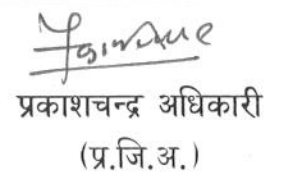 प्रकाशचन्द्र अधिकारी
(प्र.जि.अ.)